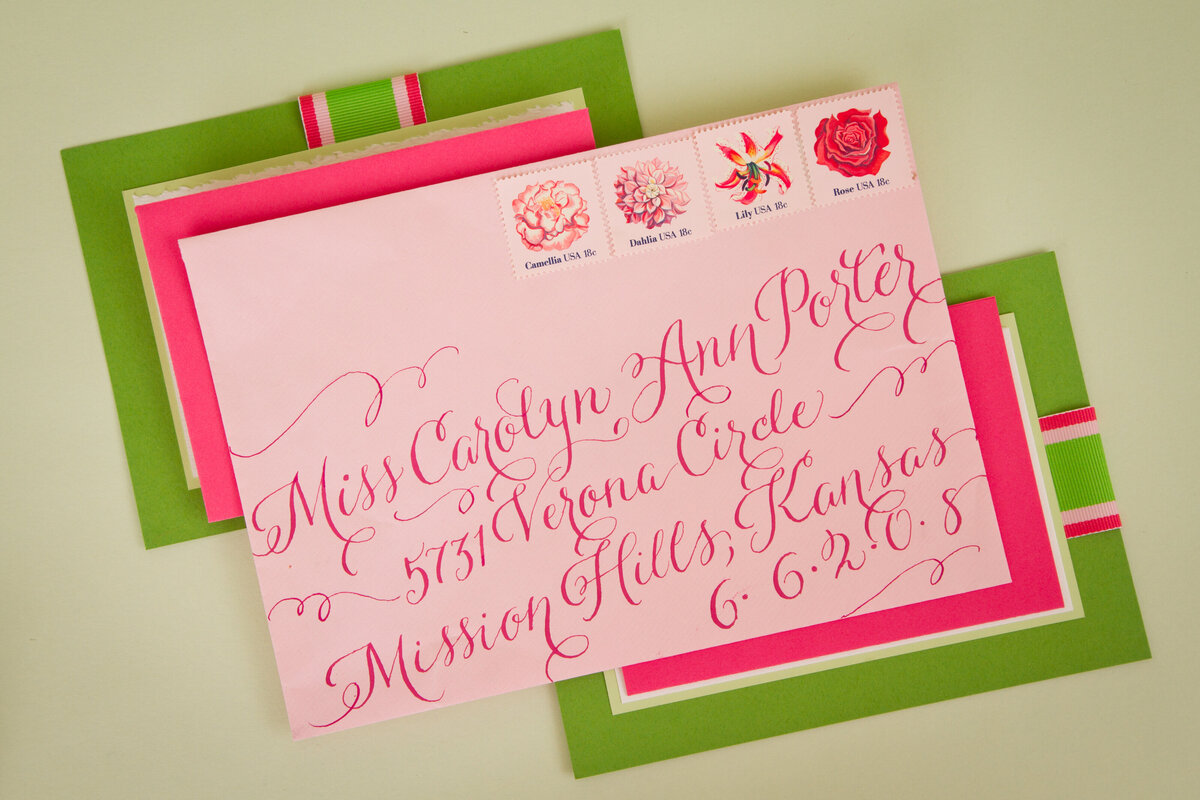 Camellia USA 18c
Dahlia USA 18c
Lily USA 18c
Rose USA 18c
Miss Carolyn Ann Porter
5731 Verona Circle
Mission Hills, Kansas
6.6.2.0.8